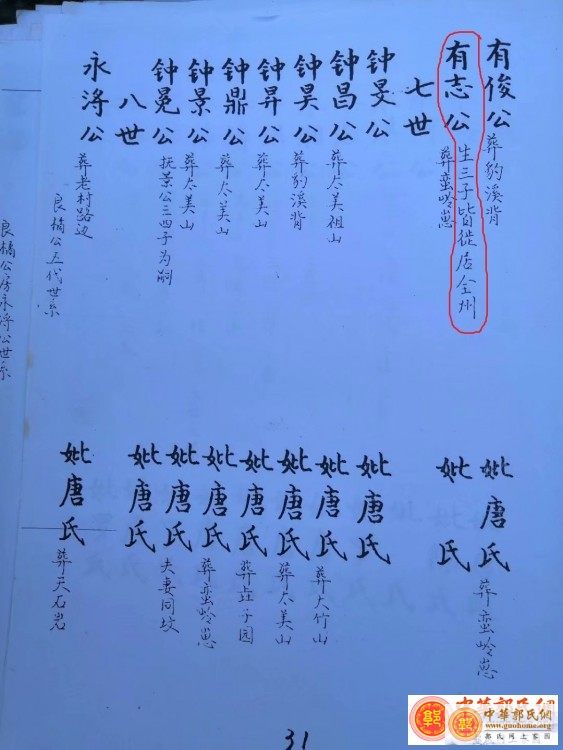 有俊公 葬豹溪背
有志公 生三子皆徙居全州
葬蛮岭崽
七世
钟旻公
钟昌公 葬尽美祖山
钟昊公 葬豹溪背
钟昇公 葬尽美山
钟鼎公 葬尽美山
钟景公 葬尽美山
钟冕公 抚景公三四子为嗣
八世
永浔公 葬老村路边
良橘公五代世系
良橘公房永浔公世系
妣唐氏 葬蛮岭崽
妣 氏
妣唐氏
妣唐氏 葬大竹山
妣唐氏 葬尽美山
妣唐氏 葬垚子园
妣唐氏 葬蛮岭崽
妣唐氏 夫妻同坟
妣唐氏
妣唐氏 葬天石岩
31
中華郭氏網
中華郭氏網
www.guohome.org
郭氏网上家园